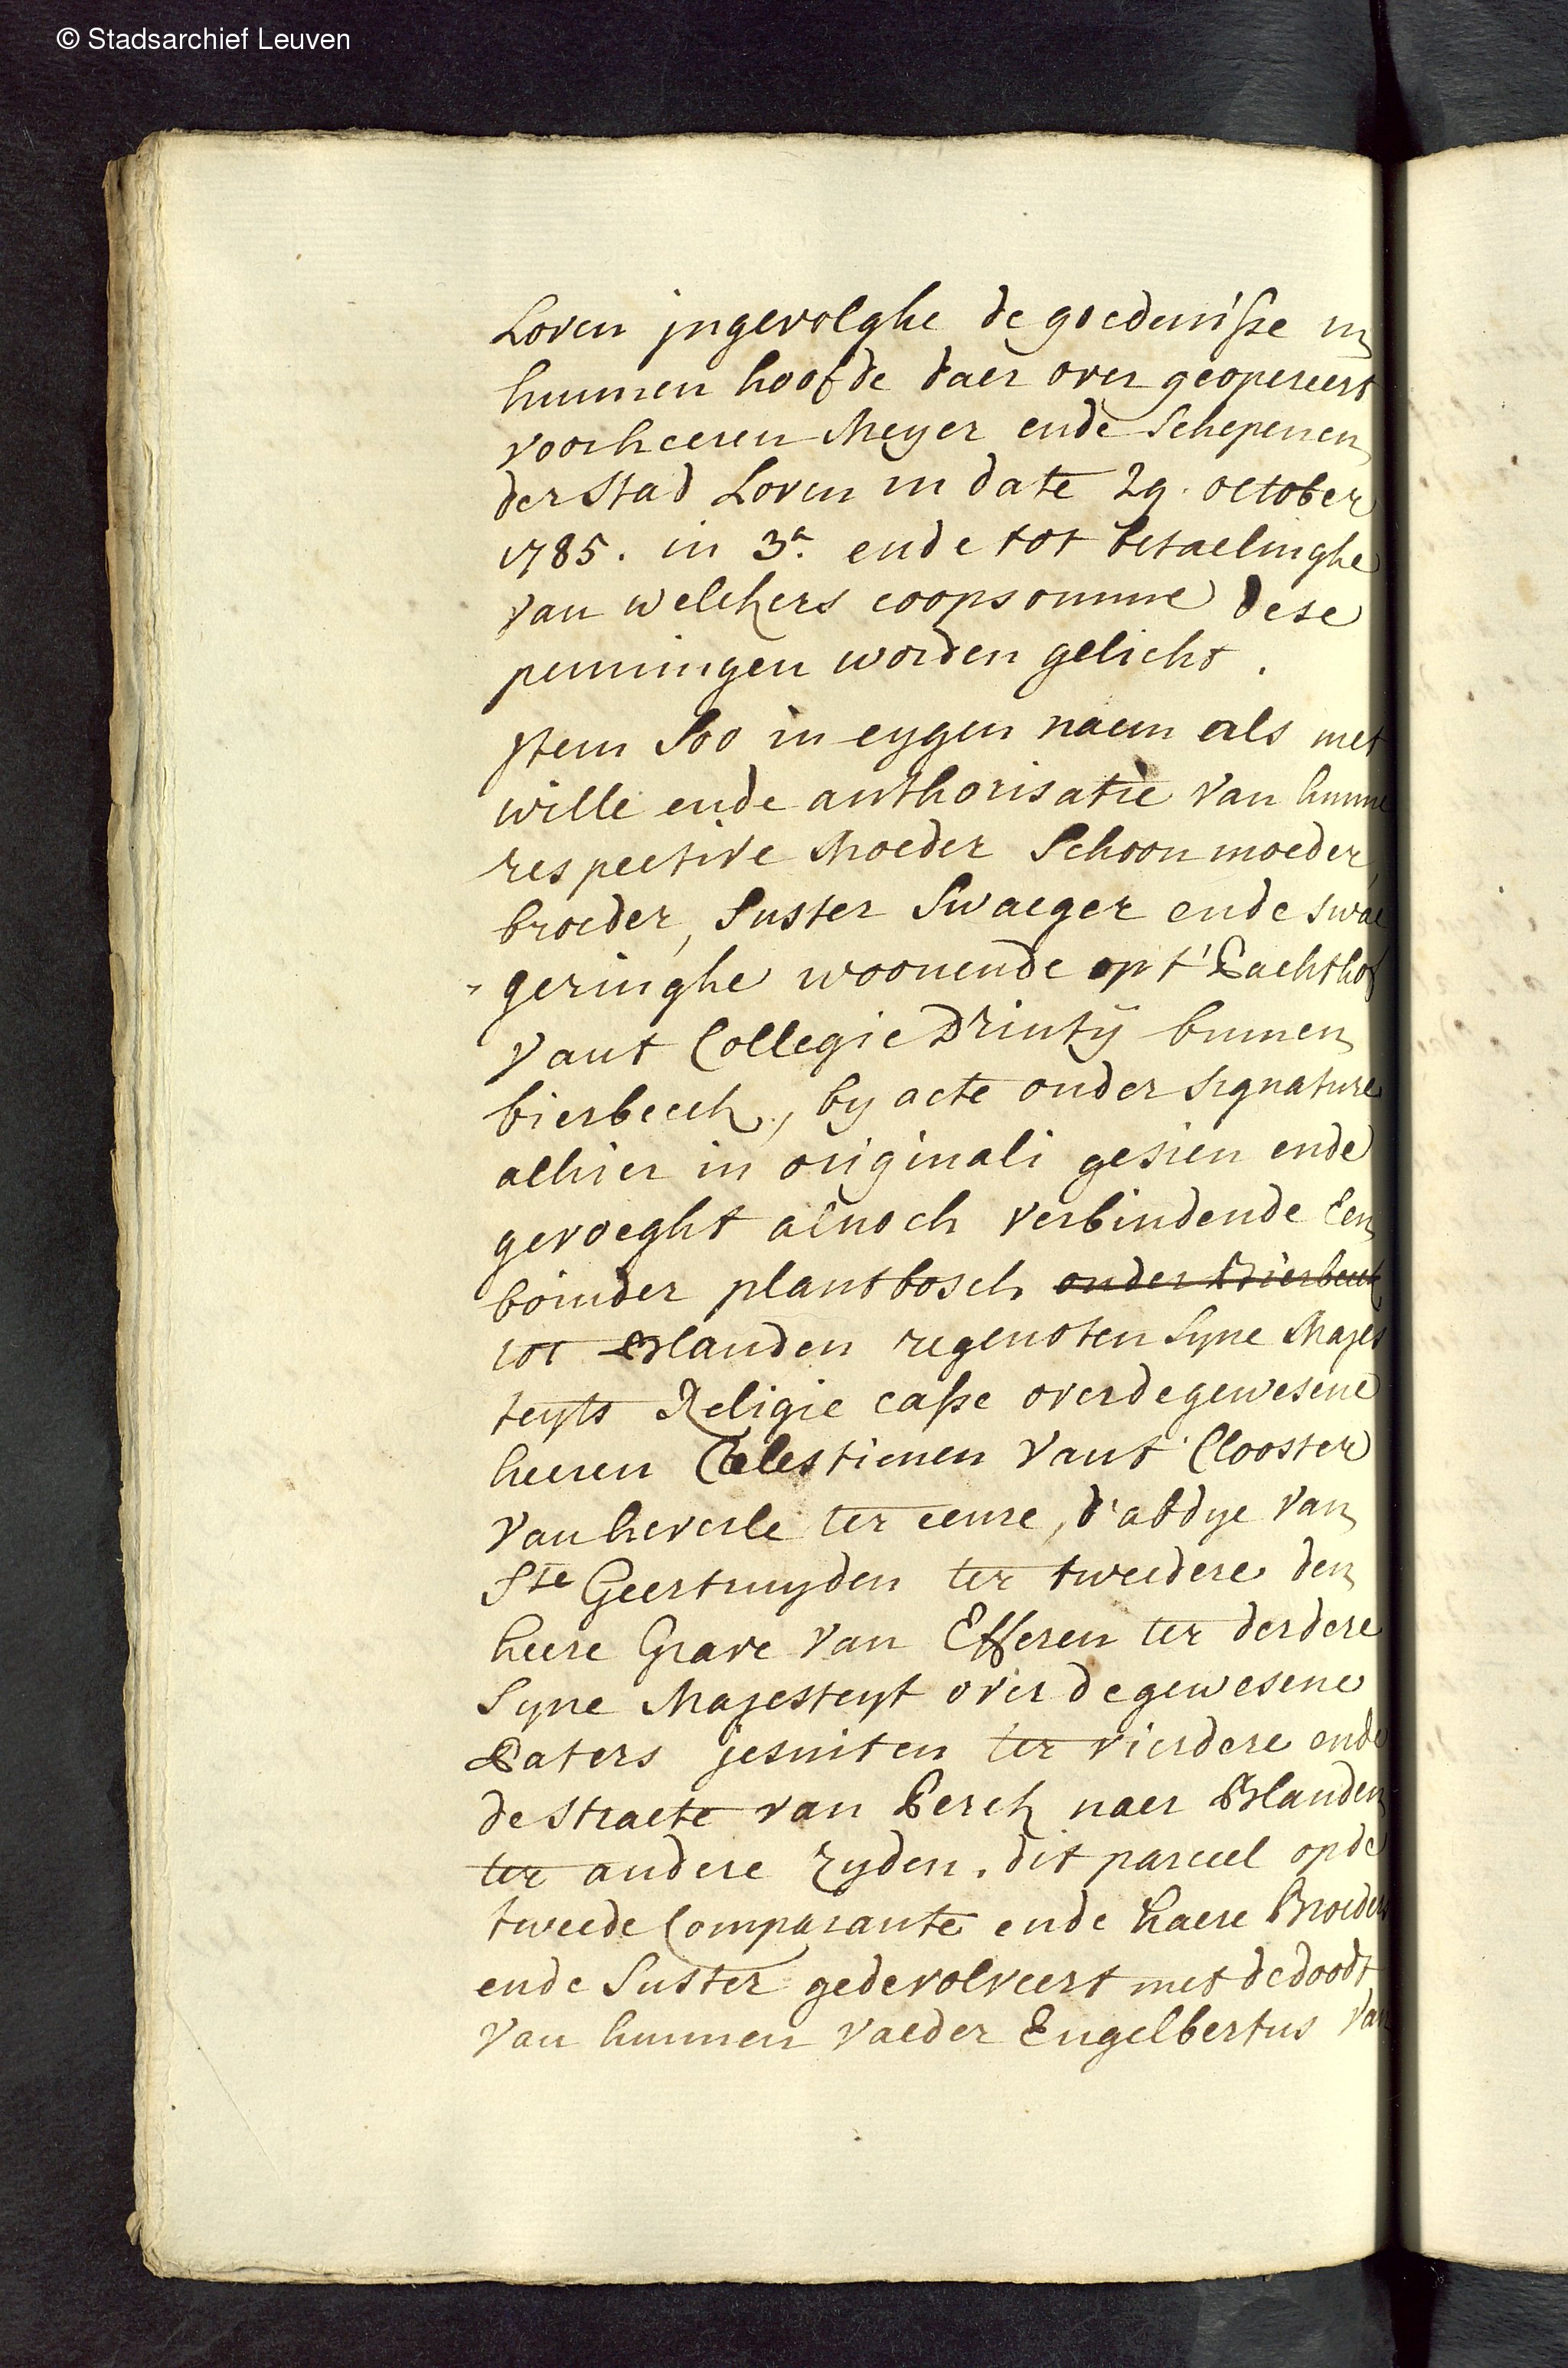 © Stadsarchief Leuven
Loven jngevolghe de goedenisse in
hunnen hoofde daer over geopereert
voorheeren Meyer ende Schepenen
der Stad Loven in date 29. october
1785. in 3a. ende tot betaelinghe
van welckers coopsomme dese
penningen worden gelicht.
jtem Soo in eygen naem als met
wille ende authorisatie van hunne
respective Moeder Schoonmoeder,
broeder, Suster Swaeger ende swae
geringhe woonende op t' Pachthof
vant Collegie Drinty binnen
bierbeeck, by acte onder signature
alhier in originali gesien ende
gevoeght alnoch verbindende Een
boinder plantbosch onder Bierbeeck
tot Blanden regenoten Syne Majes
teyts Religie casse overdegewesene
heeren Celestienen vant Clooster
van heverle ter eenre, d'abdye van
Ste Geertruyden ter tweedere den
heere Grave van Efferen ter derdere
Syne Majesteyt over degewesene
Paters jesuiten ter vierdere ende
de straete van Perck naer Blanden
ter andere zyden. dit parceel op de
tweede Comparante ende haere Broeders
ende Suster gedevolveert met de doodt
van hunnen vaeder Engelbertus van